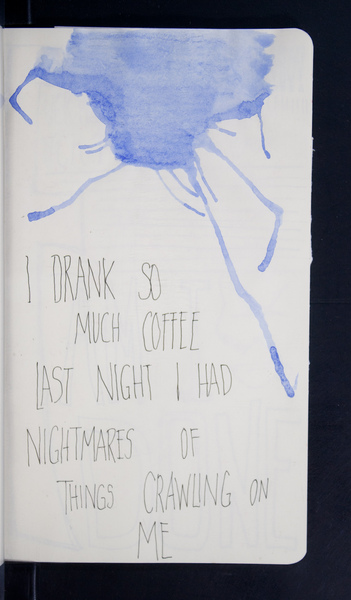 I DRANK SO
MUCH COFFEE
LAST NIGHT I HAD
NIGHTMARES OF
THINGS CRAWLING ON
ME